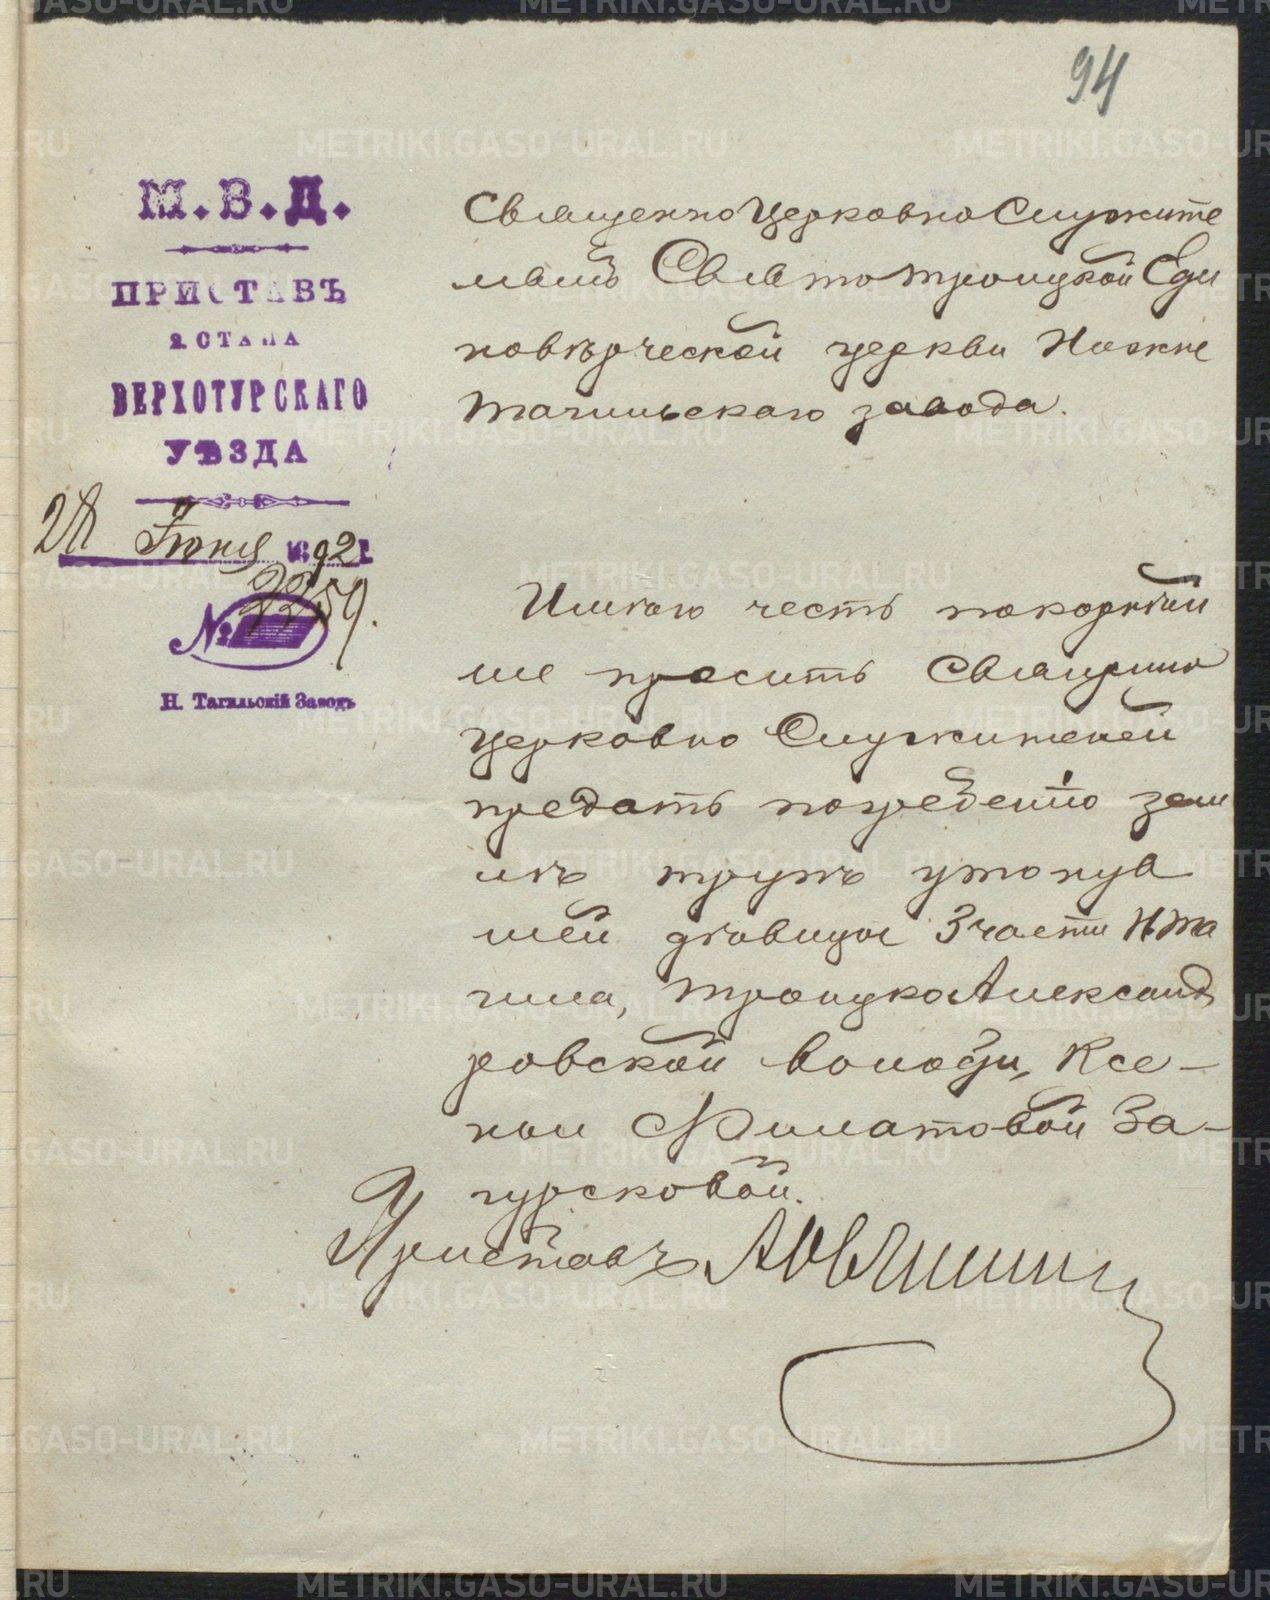 94
М.В.Д.
ПРИСТАВЪ
2 СТАНА
ВЕРХОТУРСКАГО
УѢЗДА
Іюня 1892 г.
№ 2259.
Н. Тагильскій Заводъ
Священно Церковно Служите
лямъ Свято Троицкой Еди
новѣрческой церкви Нижне
Тагильскаго завода.
Имѣю честь покорнѣй
ше просить Священно
Церковно Служителей
предать погребенію зем
лѣ трупъ утонув
шей дѣвицы 3 части Н Та
гила, Троицко Александ
ровской волости, Ксе–
нии Филатовой За–
гурсковой.
Приставъ
METRIKI.GASO-URAL.RU